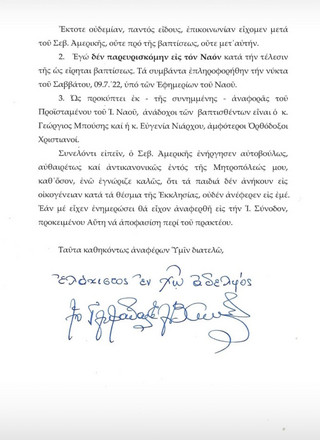 Ἔκτοτε οὐδεμίαν, παντός εἴδους, ἐπικοινωνίαν εἴχομεν μετά
τοῦ Σεβ. Ἀμερικῆς, οὔτε πρό τῆς βαπτίσεως, οὔτε μετ΄αὐτήν.
2. Ἐγώ δέν παρευρισκόμην εἰς τόν Ναόν κατά τήν τέλεσιν
τῆς ὡς εἴρηται βαπτίσεως. Τά συμβάντα ἐπληροφορήθην τήν νύκτα
τοῦ Σαββάτου, 09.7.΄22, ὑπό τῶν Ἐφημερίων τοῦ Ναοῦ.
3. Ὡς προκύπτει ἐκ - τῆς συνημμένης - ἀναφορᾶς τοῦ
Προϊσταμένου τοῦ Ἱ. Ναοῦ, ἀνάδοχοι τῶν βαπτισθέντων εἶναι ὁ κ.
Γεώργιος Μπούσης καί ἡ κ. Εὐγενία Νιάρχου, ἀμφότεροι Ὀρθόδοξοι
Χριστιανοί.
Συνελόντι εἰπεῖν, ὁ Σεβ. Ἀμερικῆς ἐνήργησεν αὐτοβούλως,
αὐθαιρέτως καί ἀντικανονικῶς ἐντός τῆς Μητροπόλεώς μου,
καθ΄ὅσον, ἐνῶ ἐγνώριζε καλῶς, ὅτι τά παιδιά δέν ἀνήκουν εἰς
οἰκογένειαν κατά τά θέσμια τῆς Ἐκκλησίας, οὐδέν ἀνέφερεν εἰς ἐμέ.
Ἐάν μέ εἶχεν ἐνημερώσει θά εἶχον ἀναφερθῆ εἰς τήν Ἱ. Σύνοδον,
προκειμένου Αὕτη νά ἀποφασίση περί τοῦ πρακτέου.
Ταῦτα καθηκόντως ἀναφέρων Ὑμῖν διατελῶ,
ἐλάχιστος ἐν Χῷ ἀδελφός